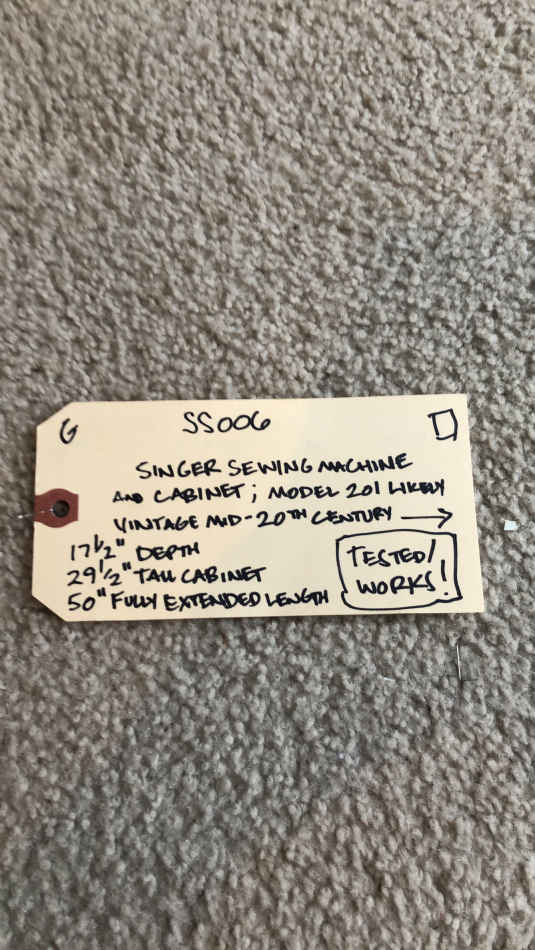 G
SS006
SINGER SEWING MACHINE
AND CABINET; MODEL 201 LIKELY
VINTAGE MID-20TH CENTURY →
17 1/2" DEPTH
29 1/2" TALL CABINET
50" FULLY EXTENDED LENGTH
TESTED/
WORKS!